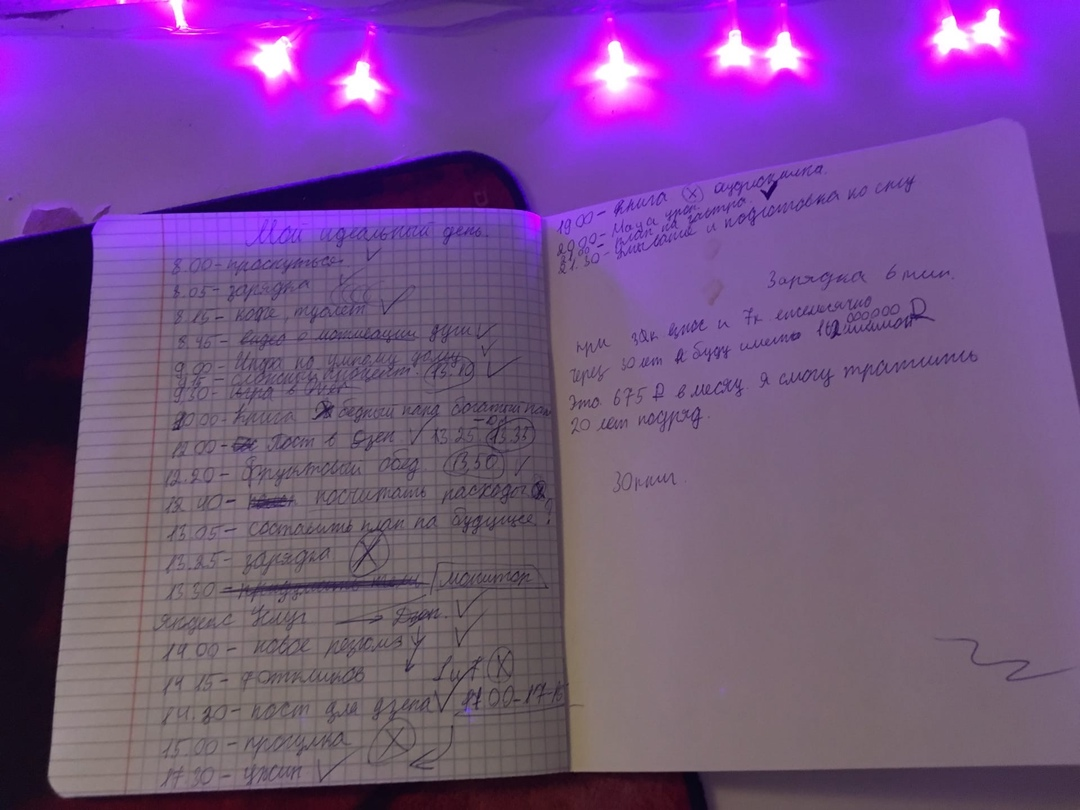 Мой идеальный день.
8.00 - проснуться
8.05 - зарядка
8.15 - кофе, туалет
8.45 - видео о мотивации души
9.00 - Инфа по умному дому
13.10
9.30 - Игра в
10.00 - Книга бедный папа богатый пап
12.00 - Пост в Дзен 13.25 - 13.35
12.20 - Фруктовый обед 13.50
12.40 - посчитать расходы
13.05 - составить план на будущее!
13.25 - зарядка
13.30 - монитор
Яндекс Услуг → Дзен.
14.00 - новое резюме
14.15 - 7 откликов
14.30 - пост для дзена
15.00 - прогулка
17.30 - ужин
19.00 - книга аудиокнига.
20.00 -
21.00 - план на завтра
21.30 - умывание и подготовка ко сну
Зарядка 6 мин.
при взнос и 7к ежемесячно
через 30 лет я буду иметь
Это 675 ₽ в месяц. я смогу тратить
20 лет подряд.
30 книг.